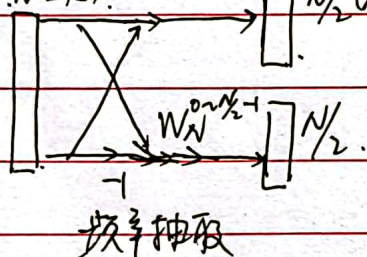 N/2
W_N^{0~N/2-1}
N/2.
-1
频率抽取